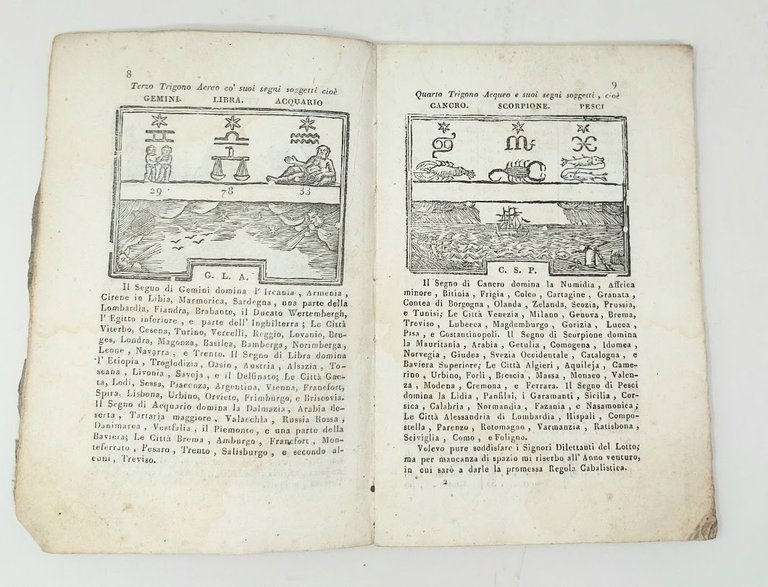 8
Terzo Trigono Aereo co' suoi segni soggetti cioè
GEMINI. LIBRA. ACQUARIO
29 78 33
C. L. A.
Il Segno di Gemini domina l'Ircania, Armenia,
Cirene in Libia, Marmorica, Sardegna, una parte della
Lombardia, Fiandra, Brabante, il Ducato Wertembergh,
l'Egitto inferiore, e parte dell'Inghilterra; Le Città
Viterbo, Cesena, Turino, Vercelli, Reggio, Lovanio, Bru-
ges, Londra, Magonza, Basilea, Bamberga, Norimberga,
Leone, Navarra, e Trento. Il Segno di Libra domina
l'Etiopia, Troglodizia, Oasin, Austria, Alsazia, To-
scana, Livonia, Savoja, e il Delfinato; Le Città Gae-
ta, Lodi, Sessa, Piacenza, Argentina, Vienna, Francfort,
Spira, Lisbona, Urbino, Orvieto, Frimburgo, e Briscovia.
Il Segno di Acquario domina la Dalmazia, Arabia de-
serta, Tartaria maggiore, Valacchia, Russia Rossa,
Danimarca, Vestfalia, il Piemonte, e una parte della
Baviera; Le Città Brema, Amburgo, Francfort, Mon-
teferrato, Pesaro, Trento, Salisburgo, e secondo al-
cuni, Treviso.
9
Quarto Trigono Acqueo e suoi segni soggetti, cioè
CANCRO. SCORPIONE. PESCI
C. S. P.
Il Segno di Cancro domina la Numidia, Affrica
minore, Bitinia, Frigia, Colco, Cartagine, Granata,
Contea di Borgogna, Olanda, Zelanda, Scozia, Prussia,
e Tunisi; Le Città Venezia, Milano, Genova, Brema,
Treviso, Lubecca, Magdemburgo, Gorizia, Lucca,
Pisa, e Costantinopoli. Il Segno di Scorpione domina
la Mauritania, Arabia, Getulia, Comogena, Idomea,
Norvegia, Giudea, Svezia Occidentale, Catalogna, e
Baviera Superiore; Le Città Algieri, Aquileja, Came-
rino, Urbino, Forlì, Brescia, Massa, Monaco, Valen-
za, Modena, Cremona, e Ferrara. Il Segno di Pesci
domina la Lidia, Panfilai, i Garamanti, Sicilia, Cor-
sica, Calabria, Normandia, Fazania, e Nasamonica;
Le Città Alessandria di Lombardia, Hispali, Compo-
stella, Parenzo, Rotomagno, Varmanzia, Ratisbona,
Sciviglia, Como, e Foligno.
Volevo pure soddisfare i Signori Dilettanti del Lotto,
ma per mancanza di spazio mi riserbo all'Anno venturo,
in cui sarò a darle la promessa Regola Cabalistica.
2